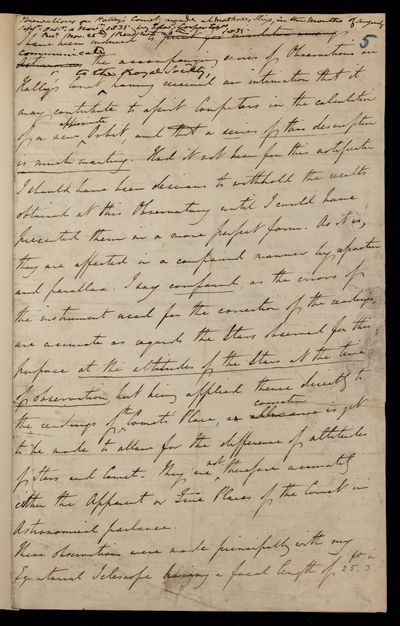 Observations on Halley's Comet, made at Markree, Sligo, in the months of August,
Sept. Octr. & Novr. 1835. by Edwd. Cooper Esqr.
Recd. Novr. 26th Read 1835.
5
I have been induced to
communicate the accompanying series of Observations on
to the Royal Society
Halley's Comet having received an intimation that it
may contribute to assist Computers in the calculation
of a new approximate Orbit and that a series of this description
is much wanting. Had it not been for this notification
I should have been desirous to withhold the results
obtained at this Observatory until I could have
presented them in a more perfect form. As it is,
they are affected in a compound manner by refraction
and parallax. I say compound, as the errors of
the instrument used for the correction of the readings,
are accurate as regards the Stars observed for this
purpose at the altitudes of the Stars at the time
of observation, but being applied thence directly to
the readings of the Comets Place, a correction is yet
to be made to allow for the difference of altitudes
of Stars and Comet. They are not therefore accurately
either the Apparent or True Places of the Comet in
Astronomical parlance.
These observations were made principally with my
Equatorial Telescope having a focal length of ft in 25.3